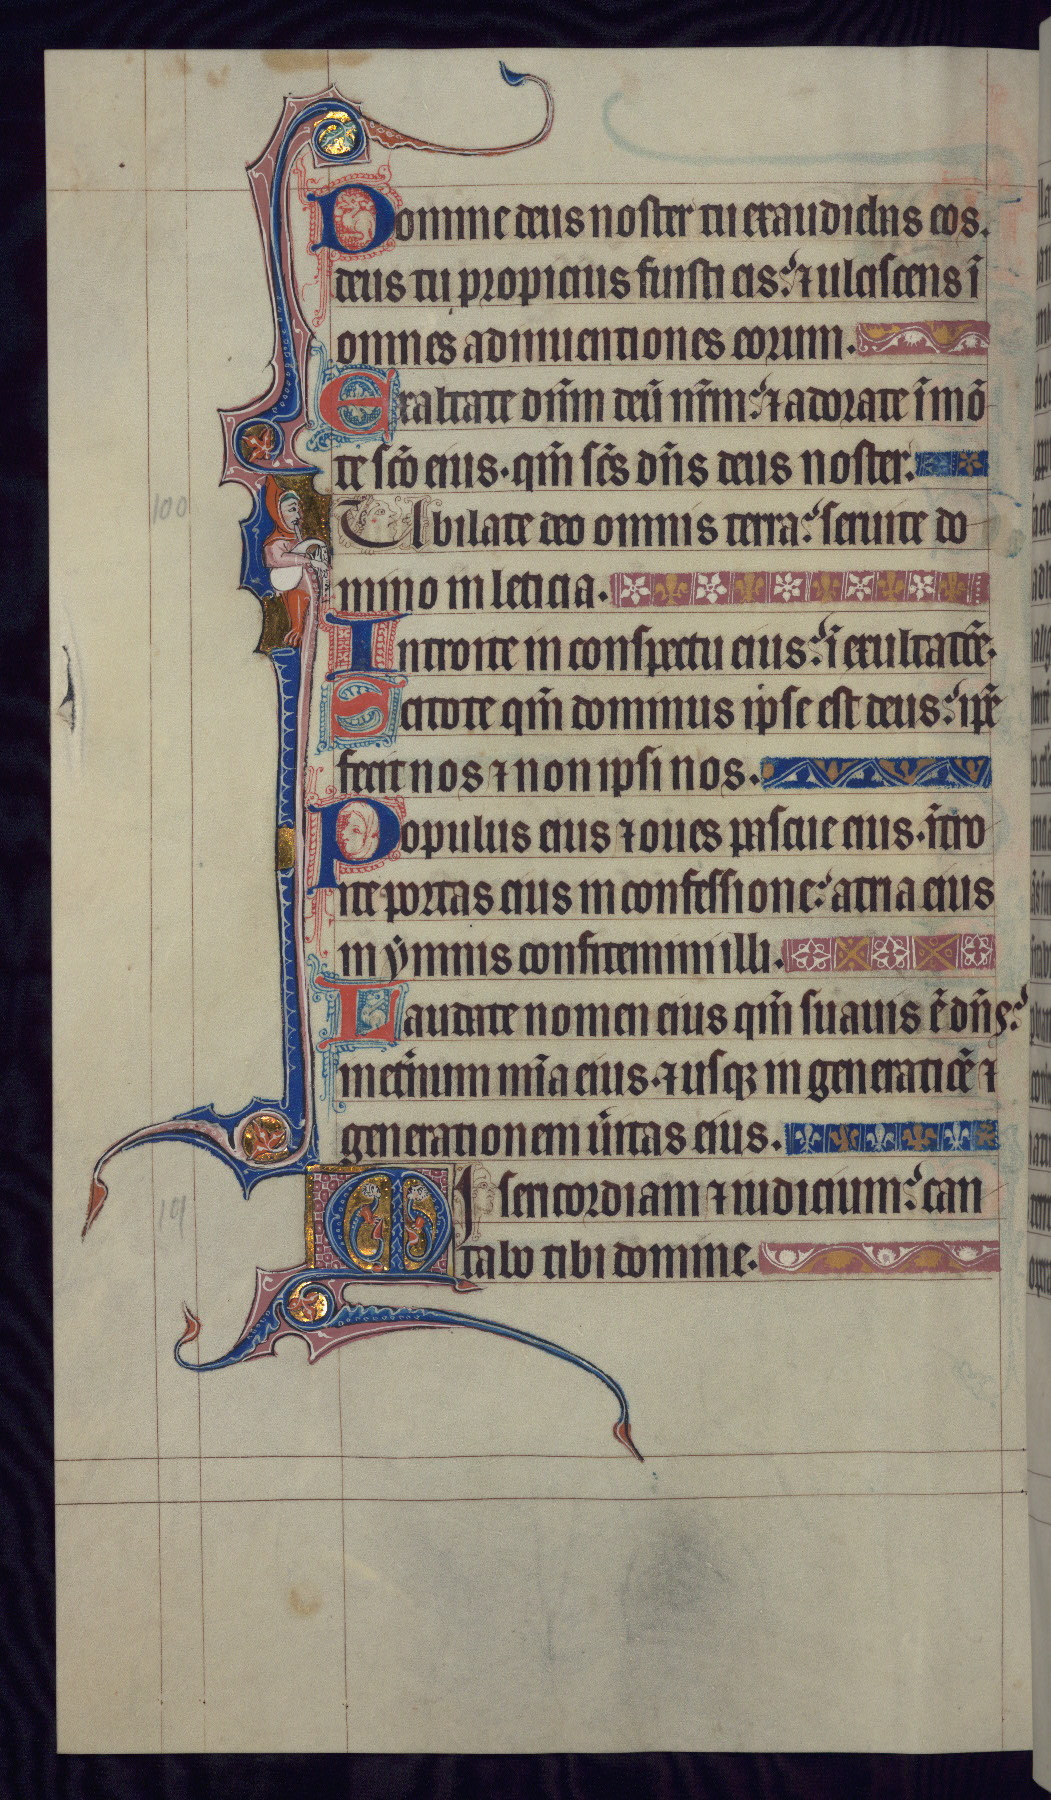 Domine deus noster tu exaudiebas eos.
deus tu propicius fuisti eis: ⁊ ulciscens ī
omnes adinuentiones eorum.
Exaltate dn̄m deū nr̄m: ⁊ adorate ī mō
te sc̄o eius. qm̄ sc̄s dn̄s deus noster.
100
Iubilate deo omnis terra: seruite do
mino in leticia.
Introite in conspectu eius: ī exultatōe.
Scitote qm̄ dominus ipse est deus: ip̄e
fecit nos ⁊ non ipsi nos.
Populus eius ⁊ oues pascue eius. ītro
ite portas eius in confessione: atria eius
in ymnis confitemini illi.
Laudate nomen eius qm̄ suauis ē dn̄s:
in et̄num mīa eius. ⁊ usqȝ in generatiōē ⁊
generationem ūitas eius.
101
Misericordiam ⁊ iudicium: can
tabo tibi domine.